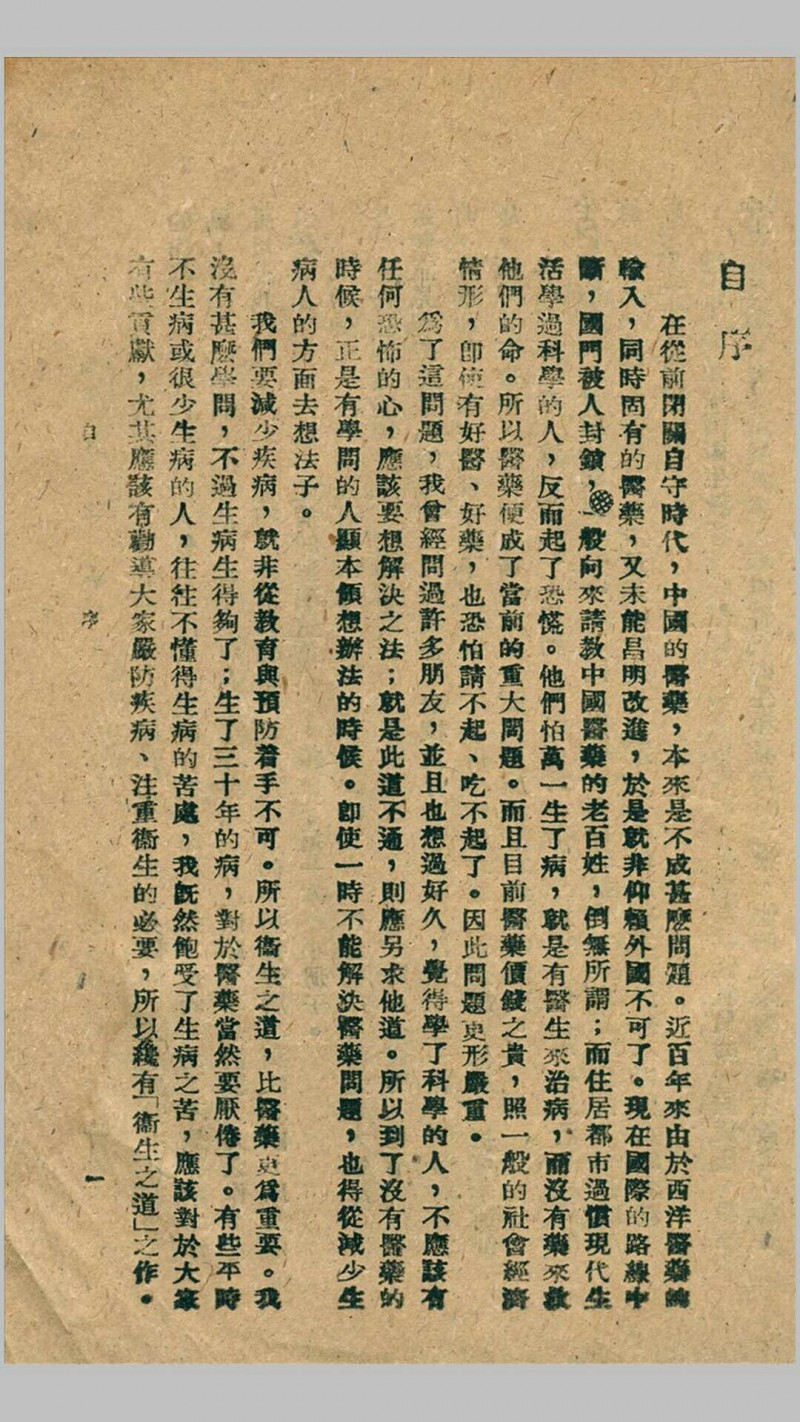 自序
在從前閉關自守時代，中國的醫藥，本來是不成甚麼問題。近百年來由於西洋醫藥的
輸入，同時固有的醫藥，又未能昌明改進，於是就非仰賴外國不可了。現在國際的路線中
斷，國門被人封鎖，一般向來請教中國醫藥的老百姓，倒無所謂；而住居都市過慣現代生
活學過科學的人，反而起了恐慌。他們怕萬一生了病，就是有醫生來治病，而沒有藥來救
他們的命。所以醫藥便成了當前的重大問題。而且目前醫藥價錢之貴，照一般的社會經濟
情形，卽使有好醫、好藥，也恐怕請不起、吃不起了。因此問題更形嚴重。
爲了這問題，我曾經問過許多朋友，並且也想過好久，覺得學了科學的人，不應該有
任何恐怖的心，應該要想解決之法；就是此道不通，則應另求他道。所以到了沒有醫藥的
時候，正是有學問的人顯本領想辦法的時候。卽使一時不能解決醫藥問題，也得從減少生
病人的方面去想法子。
我們要減少疾病，就非從教育與預防着手不可。所以衞生之道，比醫藥更爲重要。我
沒有甚麼學問，不過生病生得夠了；生了三十年的病，對於醫藥當然要厭倦了。有些平時
不生病或很少生病的人，往往不懂得生病的苦處，我旣然飽受了生病之苦，應該對於大家
有些貢獻，尤其應該有勸導大家嚴防疾病、注重衞生的必要，所以纔有「衞生之道」之作。
自序
一